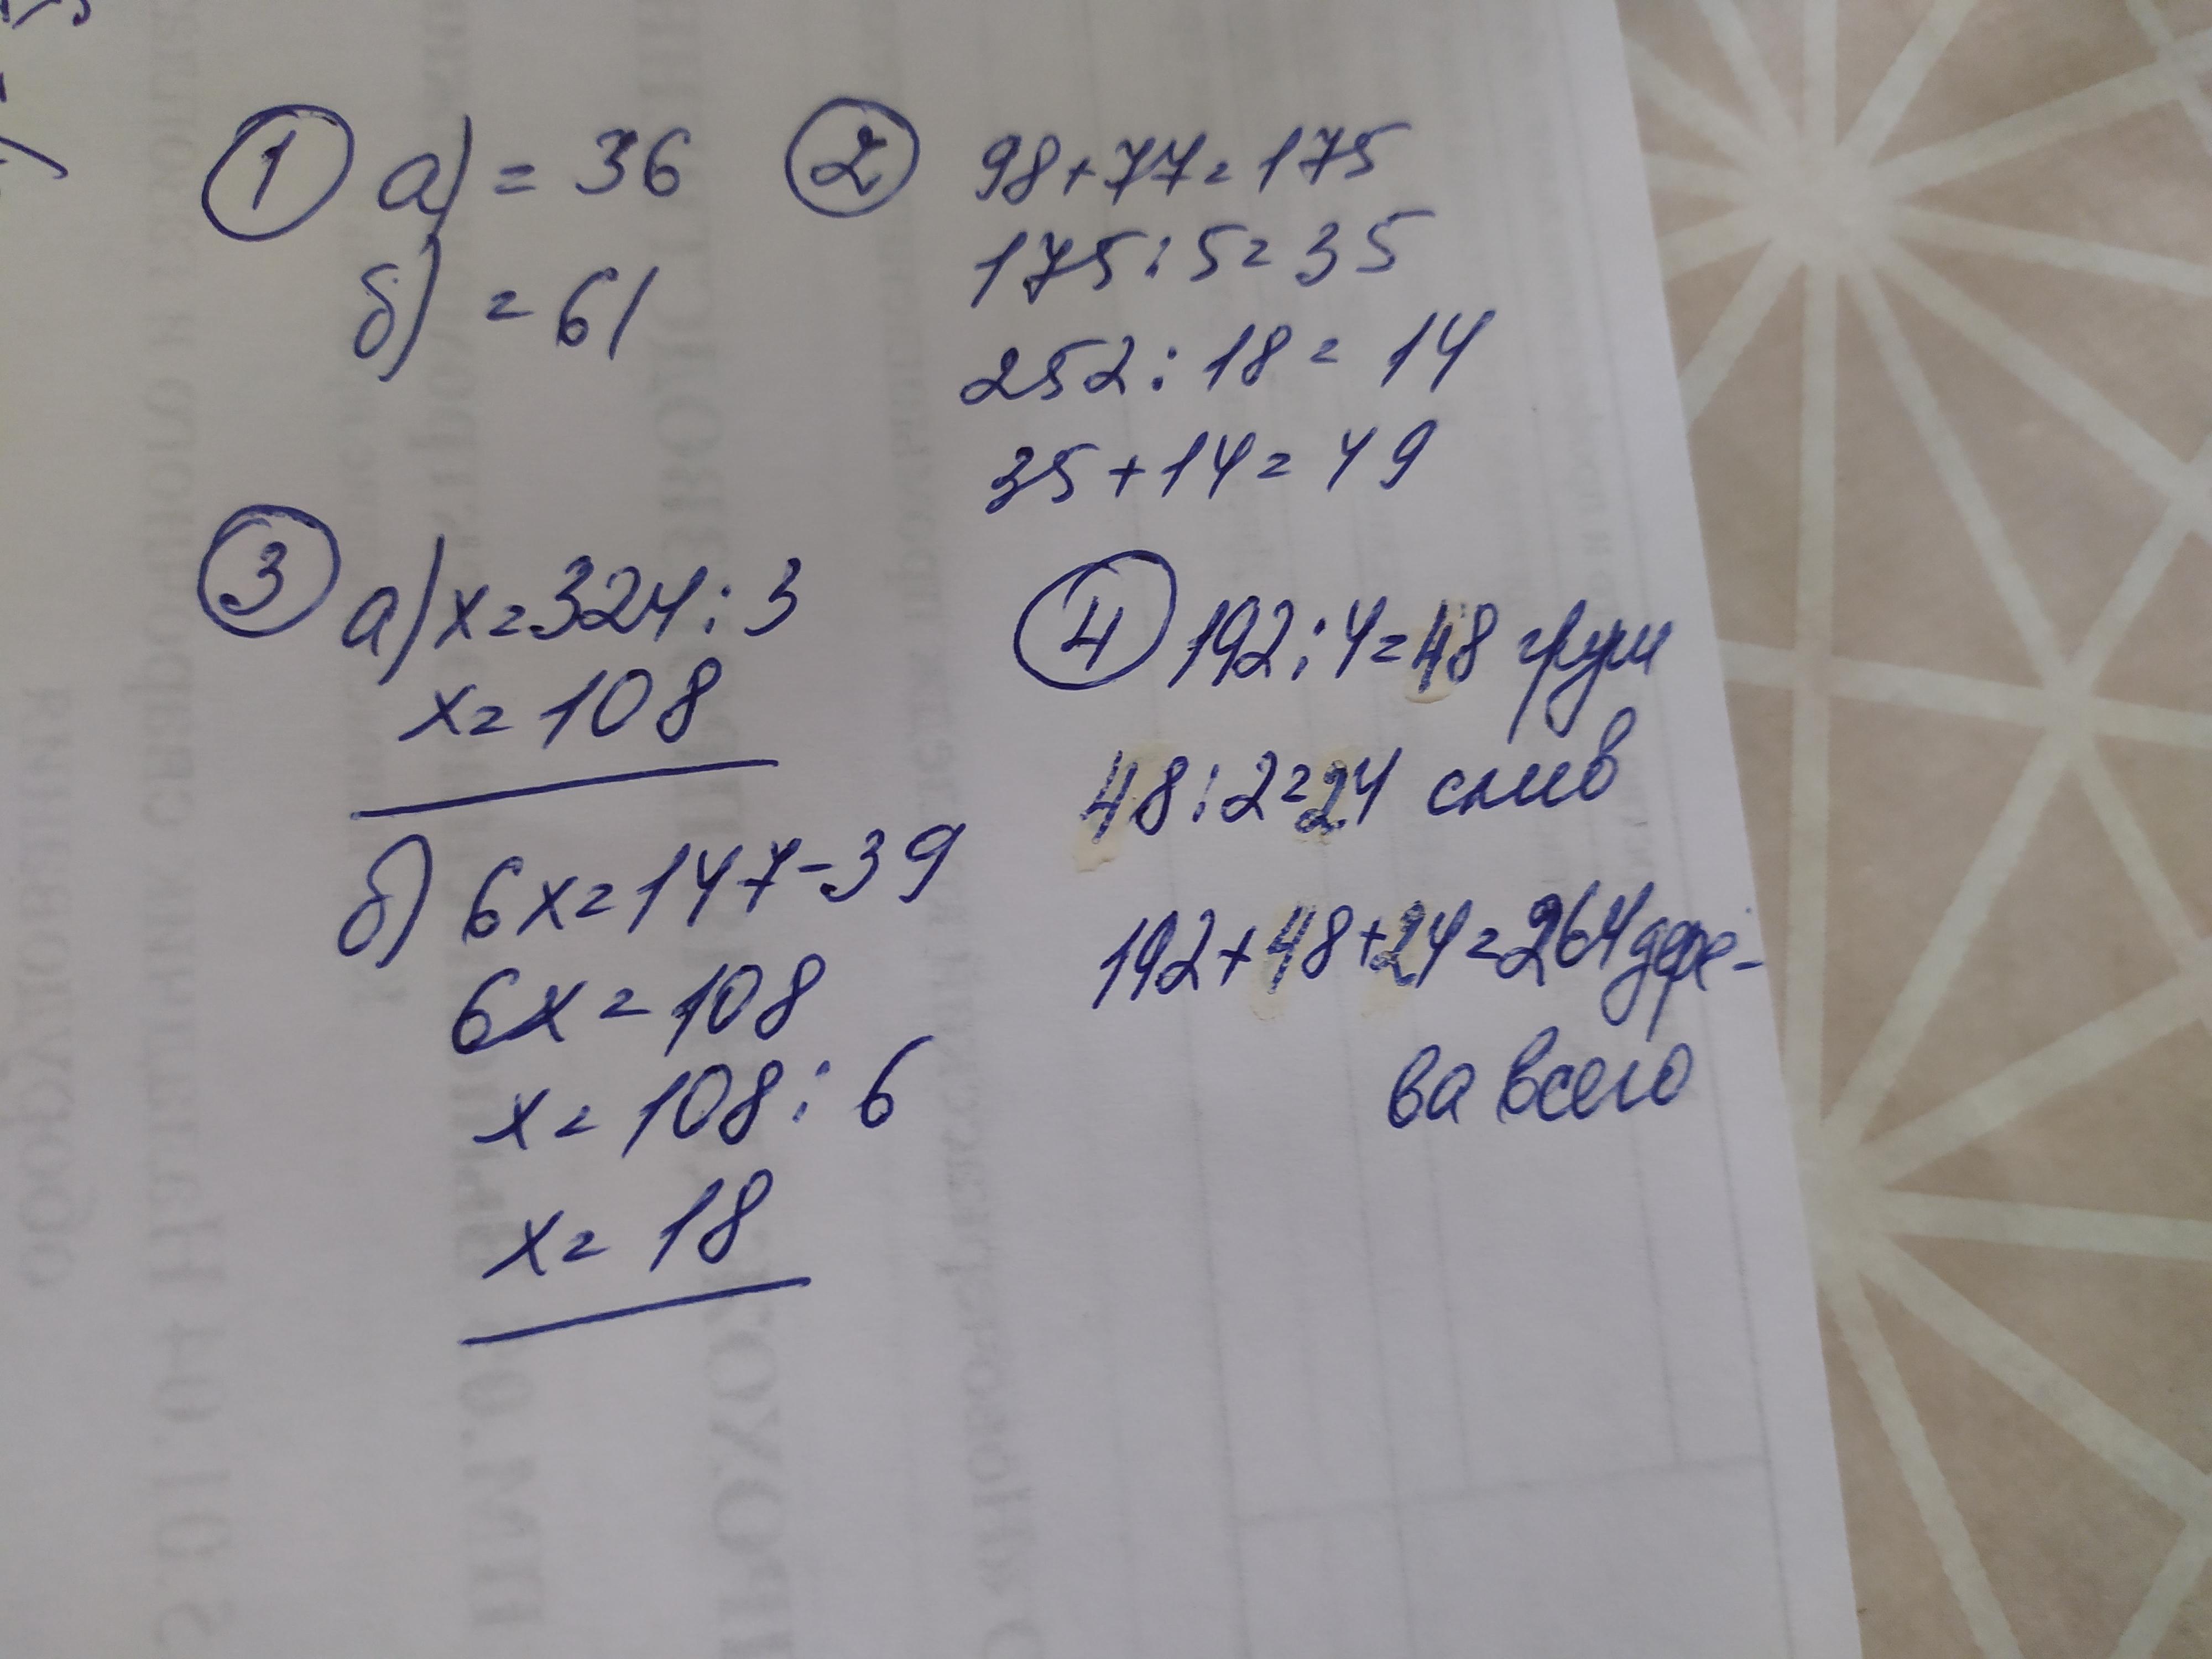 1 а) = 36
б) = 61
2 98+77=175
175:5=35
252:18=14
35+14=49
3 а) x=324:3
x=108
б) 6x=147-39
6x=108
x=108:6
x=18
4 192:4=48 груш
48:2=24 слив
192+48+24=264 дере-
ва всего